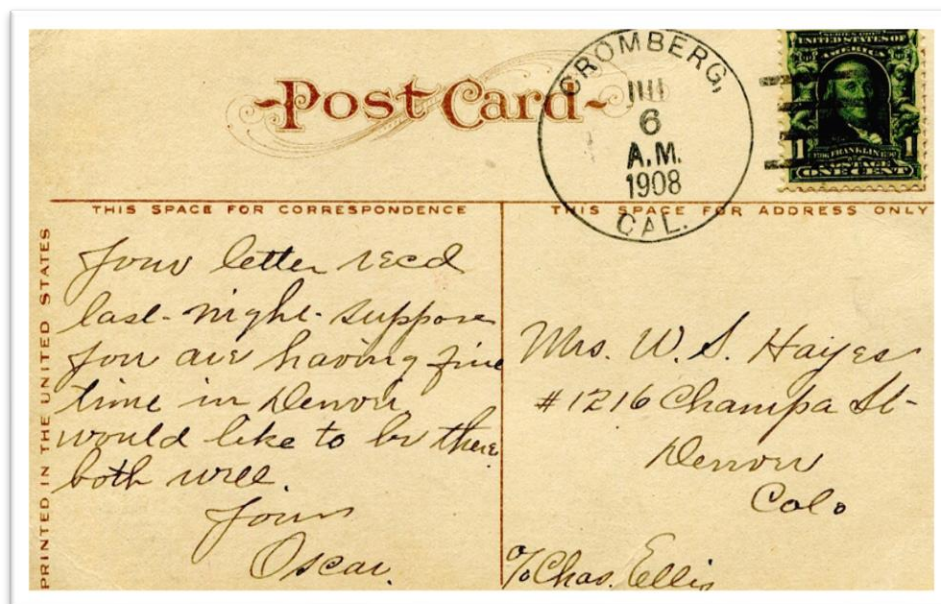 Post Card
CROMBERG,
6
A.M.
1908
CAL.
SERIES 1902
UNITED STATES OF
AMERICA
1 1
FRANKLIN
POSTAGE
ONE CENT
THIS SPACE FOR CORRESPONDENCE
THIS SPACE FOR ADDRESS ONLY
PRINTED IN THE UNITED STATES
Your letter recd
last-night-suppose
you are having fine
time in Denver
would like to be there
both well.
Yours
Oscar.
Mrs. W. S. Hayes
#1216 Champa St-
Denver
Colo
℅ Chas. Ellis